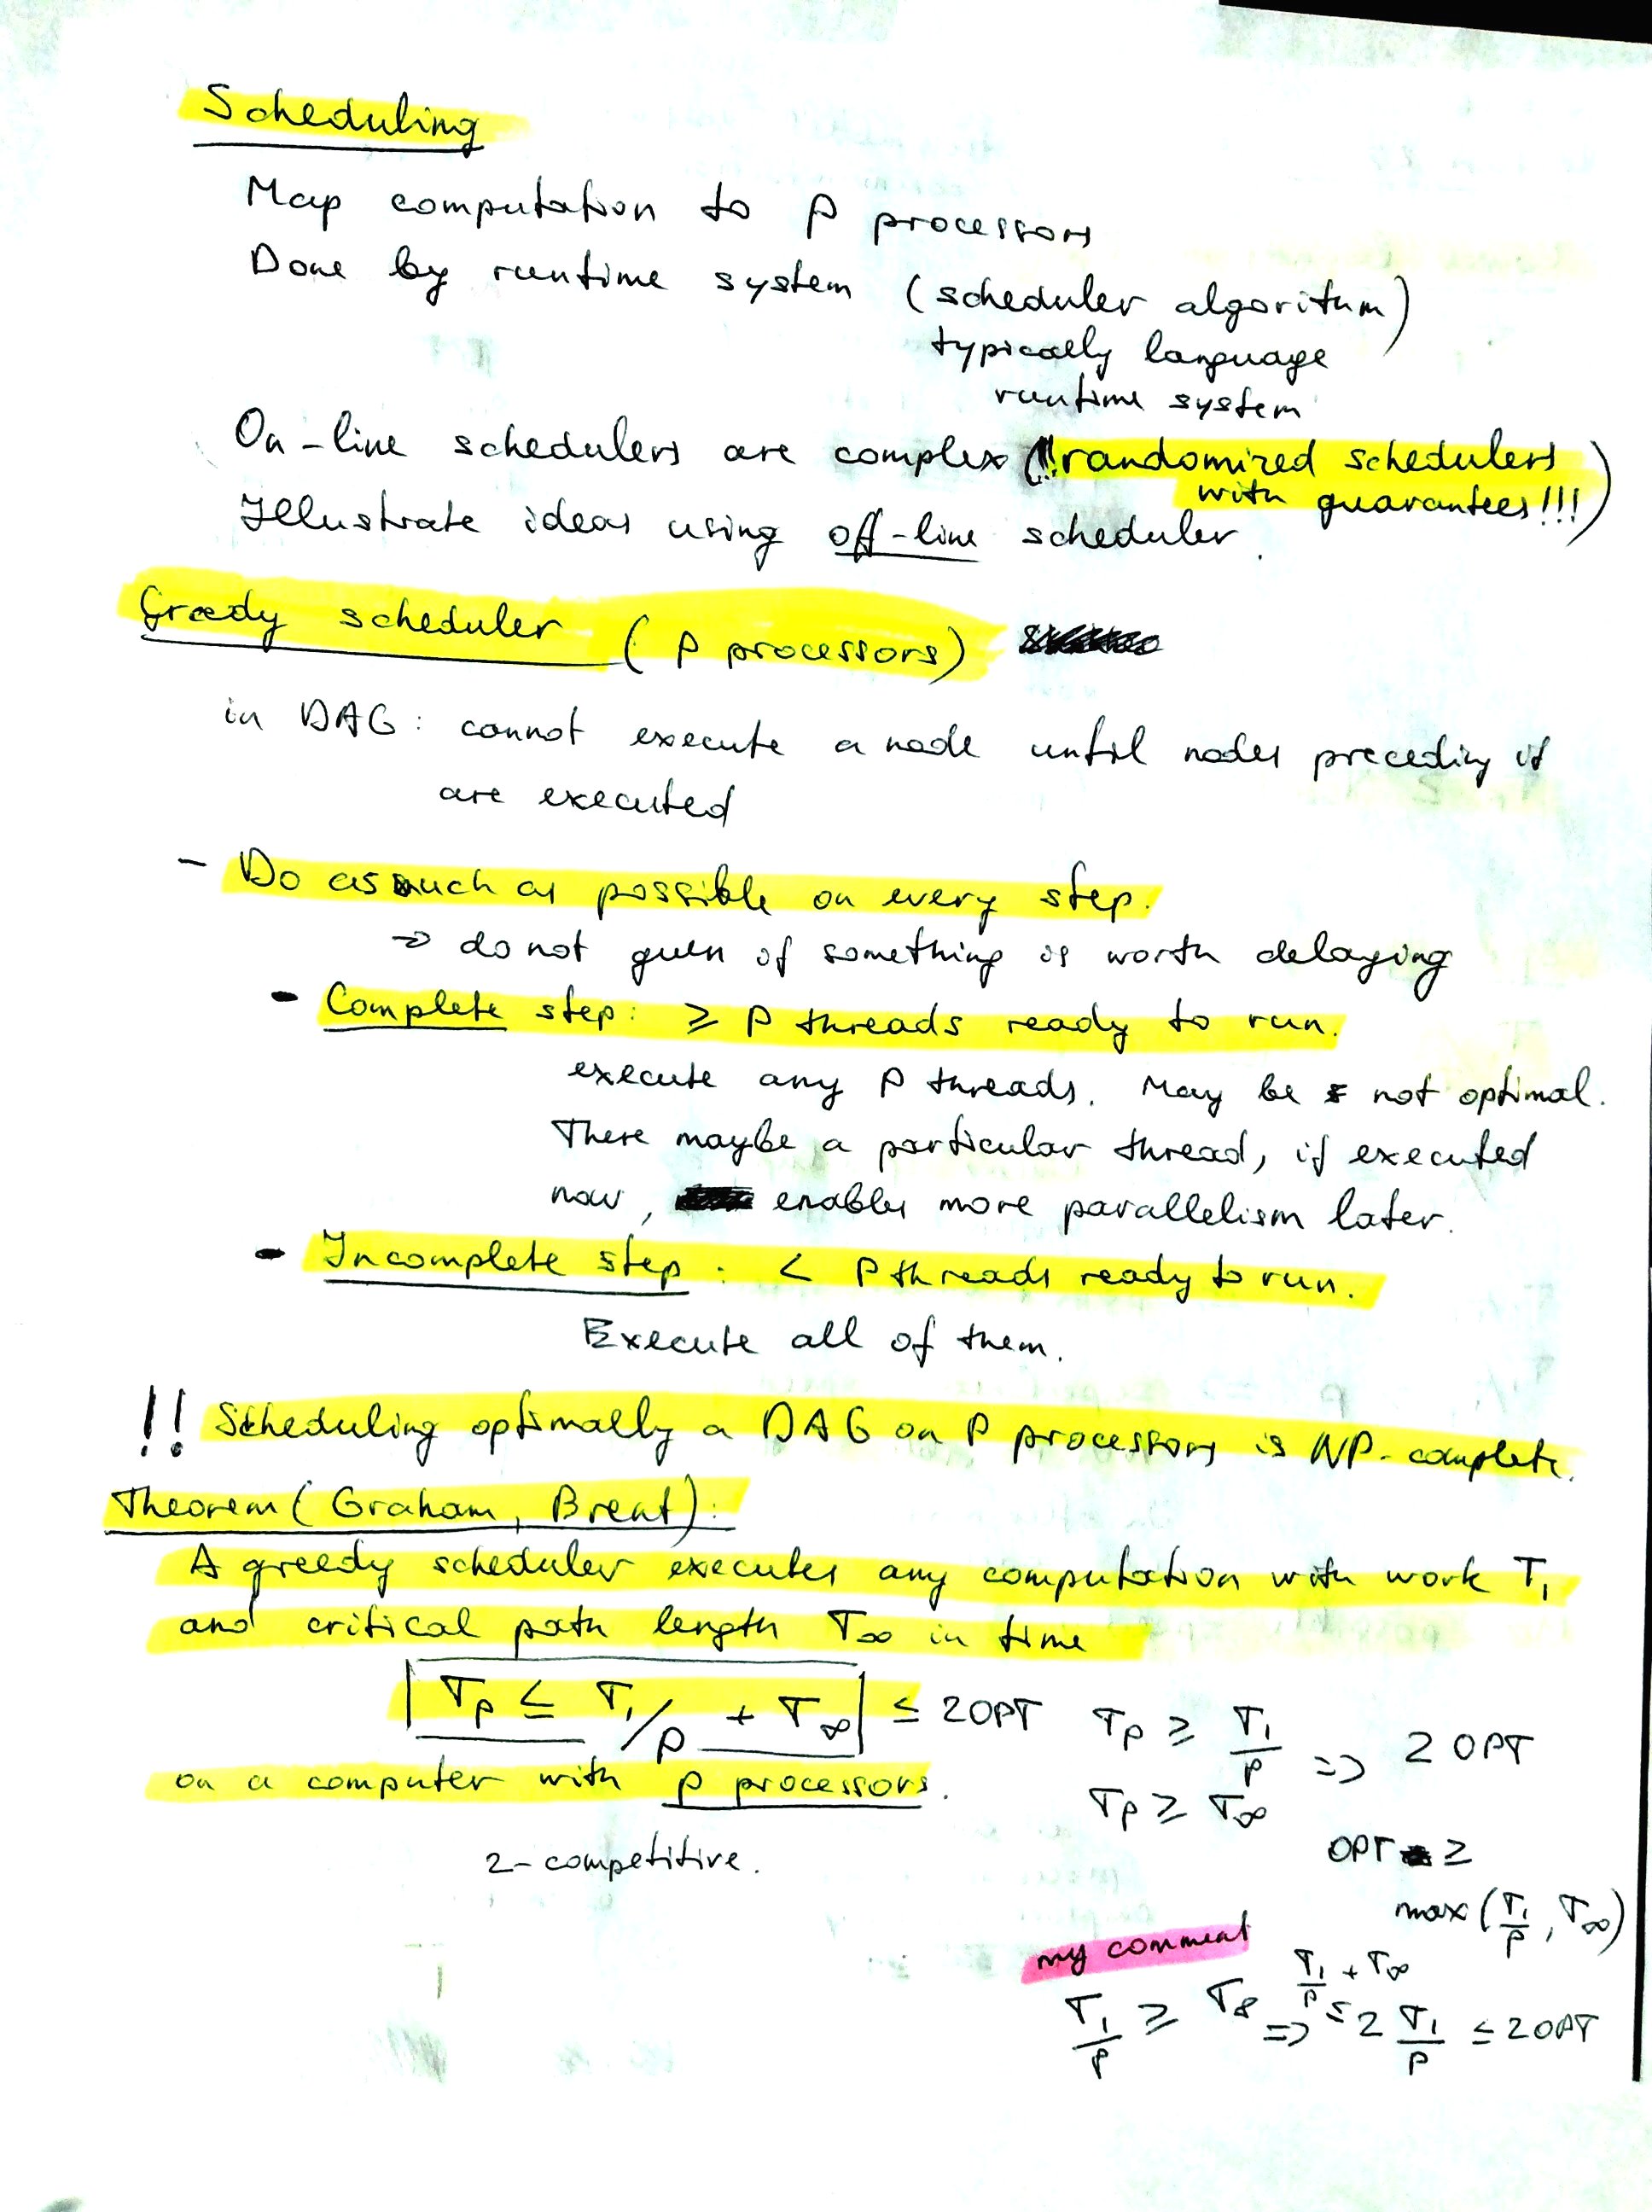 Scheduling
Map computation to P processors
Done by runtime system (scheduler algoritum)
typically language
runtime system
On-line schedulers are complex (!! randomized schedulers
with guarantees!!!)
Illustrate ideas using off-line scheduler.
Greedy scheduler (P processors)
in DAG: cannot execute a node until nodes preceding it
are executed
- Do as much as possible on every step.
⇒ do not guess if something is worth delaying
- Complete step: ≥ P threads ready to run.
execute any P threads. May be not optimal.
There maybe a particular thread, if executed
now, enables more parallelism later.
- Incomplete step: < P threads ready to run.
Execute all of them.
!! Scheduling optimally a DAG on P processors is NP-complete.
Theorem (Graham, Brent):
A greedy scheduler executes any computation with work T₁
and critical path length T∞ in time
Tp ≤ T₁/p + T∞ ≤ 2OPT
on a computer with P processors.
2-competitive.
Tp ≥ T₁/p ⇒ 2 OPT
Tp ≥ T∞
OPT ≥
max (T₁/p, T∞)
my comment
T₁/p ≥ T∞ ⇒ T₁/p + T∞ ≤ 2 T₁/p ≤ 2OPT